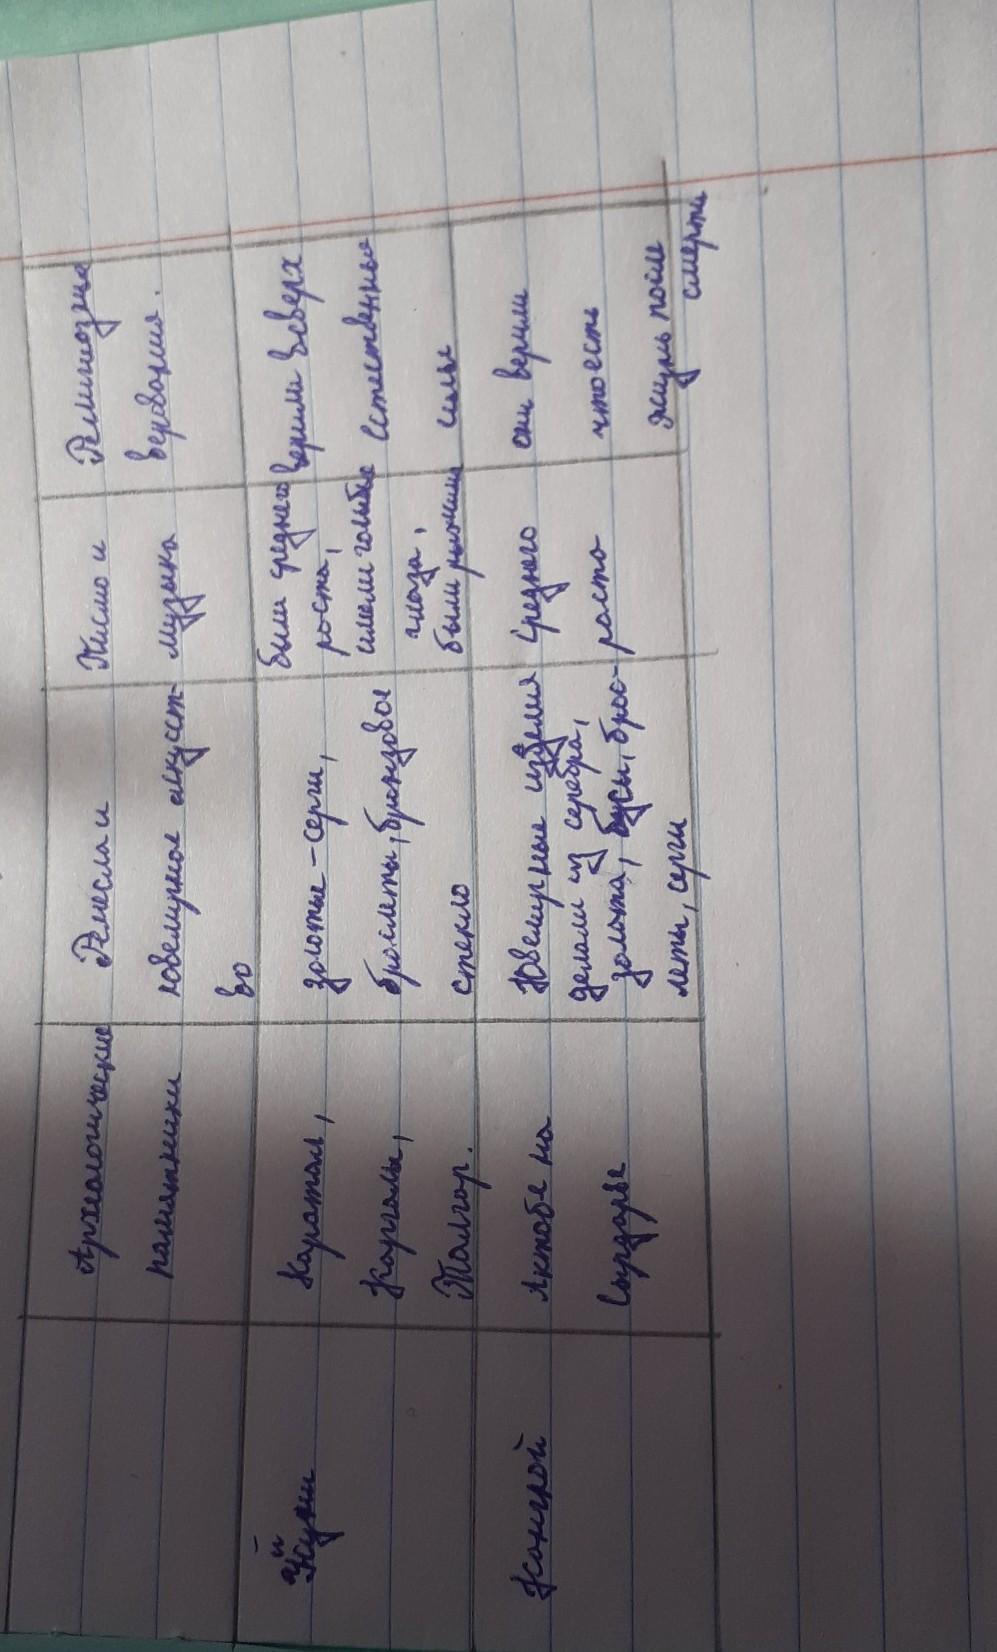 Археологические
памятники
Ремесла и
ювелирное искусст-
во
Письмо и
музыка
Религиозна
верования.
Каратал,
Каргалы,
Талгар.
золотые-серги,
браслеты, бронзовое
стекло
были среднего
роста,
имели голибые
глаза,
были рыжими
верили всверх
естественные
силы
Кангюй
Актобе на
Сырдарье
Ювелирные изделия
делали из серебра,
золота, бусы, брас-
леты, серги
Среднего
роста
они верили
что есть
жизнь после
смерти